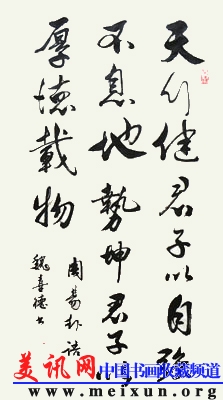 天行健君子以自强
不息地势坤君子以
厚德载物
周易卦语
魏喜德书
美讯网 中国书画收藏频道
www.meixun.org